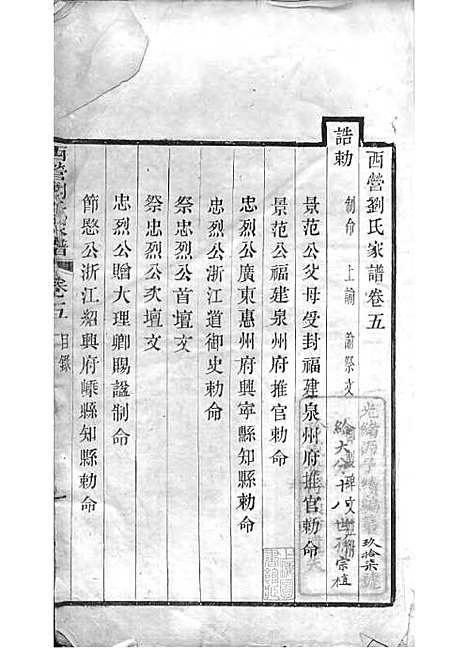 西營劉氏家譜卷五
誥勅 制命 上諭 諭祭文 碑文
景范公父母受封福建泉州府推官勅命
景范公福建泉州府推官勅命
忠烈公廣東惠州府興寧縣知縣勅命
忠烈公浙江道御史勅命
祭忠烈公首壇文
祭忠烈公次壇文
忠烈公贈大理卿賜諡制命
節愍公浙江紹興府嵊縣知縣勅命
西營劉氏家譜 卷五 目錄
光緒丙子續編
玖拾柒號
給大分十八世
宗植